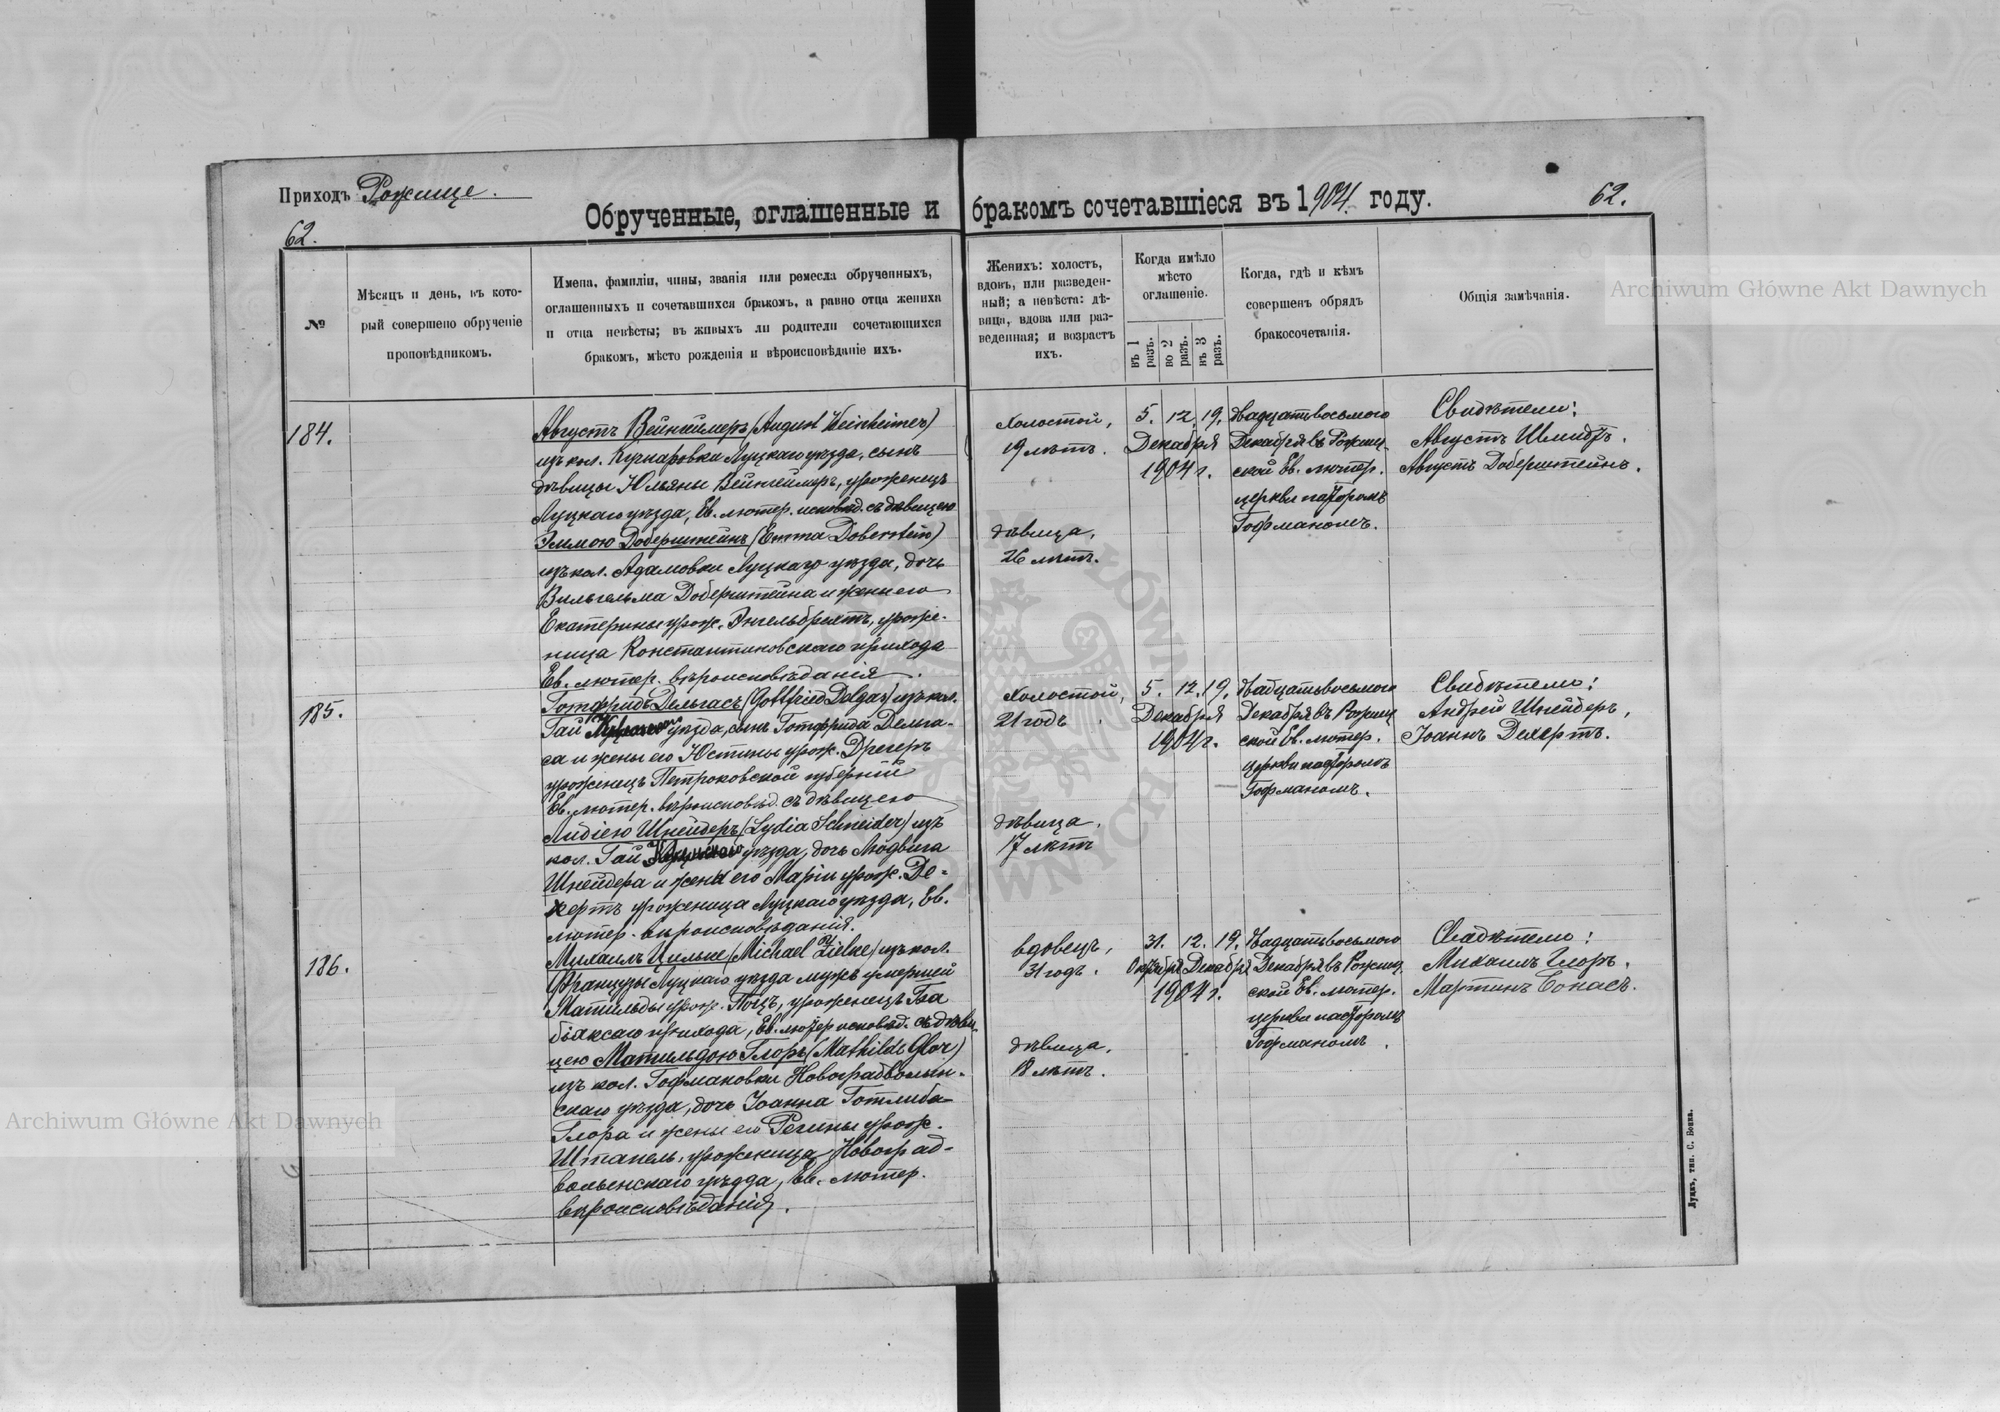 Приходъ Рожище.
62.
Обрученные, оглашенные и бракомъ сочетавшіеся въ 1904 году.
62.
№
Мѣсяцъ и день, въ кото-
рый совершено обрученіе
проповѣдникомъ.
Имена, фамиліи, чины, званія или ремесла обрученныхъ,
оглашенныхъ и сочетавшихся бракомъ, а равно отца жениха
и отца невѣсты; въ живыхъ ли родители сочетающихся
бракомъ, мѣсто рожденія и вѣроисповѣданіе ихъ.
Женихъ: холостъ,
вдовъ, или разведен-
ный; а невѣста: дѣ-
вица, вдова или раз-
веденная; и возрастъ
ихъ.
Когда имѣло
мѣсто
оглашеніе.
въ 1 разъ.
во 2 разъ.
въ 3 разъ.
Когда, гдѣ и кѣмъ
совершенъ обрядъ
бракосочетанія.
Общія замѣчанія.
184.
Августъ Вейнгеймеръ (August Weinheimer)
изъ кол. Луцкаго уѣзда, сынъ
дѣвицы Юльяны Вейнгеймеръ, уроженецъ
Луцкаго уѣзда, Ев. лютер. исповѣд. съ дѣвицею
Эммою Доберштейнъ (Emma Doberstein)
изъ кол. Адамовки Луцкаго уѣзда, дочь
Вильгельма Доберштейна и жены его
Екатерины урож. Энгельбрехтъ, уроже-
ница Константиновскаго прихода
Ев. лютер. вѣроисповѣданія.
Холостой,
19 лѣтъ.
дѣвица,
26 лѣтъ.
5. 12. 19.
Декабря
1904 г.
двадцатьвосьмого
Декабря въ Рожищ-
ской Ев. лютер.
церкви пасторомъ
Гофманомъ.
Свидѣтели:
Августъ Шмидтъ.
Августъ Доберштейнъ.
185.
Готфридъ Дельгасъ (Gottfried Delgas) изъ кол.
Гай уѣзда, сынъ Готфрида Дельга-
са и жены его Юстины урож. Дрегеръ
уроженецъ Петроковской губерніи
Ев. лютер. вѣроисповѣд. съ дѣвицею
Лидіею Шнейдеръ (Lydia Schneider) изъ
кол. Гай уѣзда, дочь Людвига
Шнейдера и жены его Маріи урож. Де-
хертъ уроженица Луцкаго уѣзда, Ев.
лютер. вѣроисповѣданія.
Холостой,
21 годъ.
дѣвица,
17 лѣтъ
5. 12. 19.
Декабря
1904 г.
двадцатьвосьмого
Декабря въ Рожищ-
ской Ев. лютер.
церкви пасторомъ
Гофманомъ.
Свидѣтели:
Андрей Шнейдеръ,
Іоаннъ Дехертъ.
186.
Михаилъ Цильке (Michael Zielke) изъ кол.
Французы Луцкаго уѣзда мужъ умершей
Матильды урож. уроженецъ Га
біякскаго прихода, Ев. лютер исповѣд. съ дѣви-
цею Матильдою Глоръ (Mathilde Glor)
изъ кол. Гофмановки Новоградволын-
скаго уѣзда, дочь Іоанна Готлиба
Глора и жены его Регины урож.
Штапель, уроженица Новоград-
волынскаго уѣзда, Ев. лютер.
вѣроисповѣданія.
вдовецъ,
31 годъ.
дѣвица,
18 лѣтъ.
31. 12. 19.
Октября Декабря
1904 г.
двадцатьвосьмого
Декабря въ Рожищ-
ской Ев. лютер.
церкви пасторомъ
Гофманомъ.
Свидѣтели:
Михаилъ Глоръ.
Мартинъ Бонасъ.
Луцкъ, тип. С. Бонка.
Archiwum Główne Akt Dawnych
Archiwum Główne Akt Dawnych